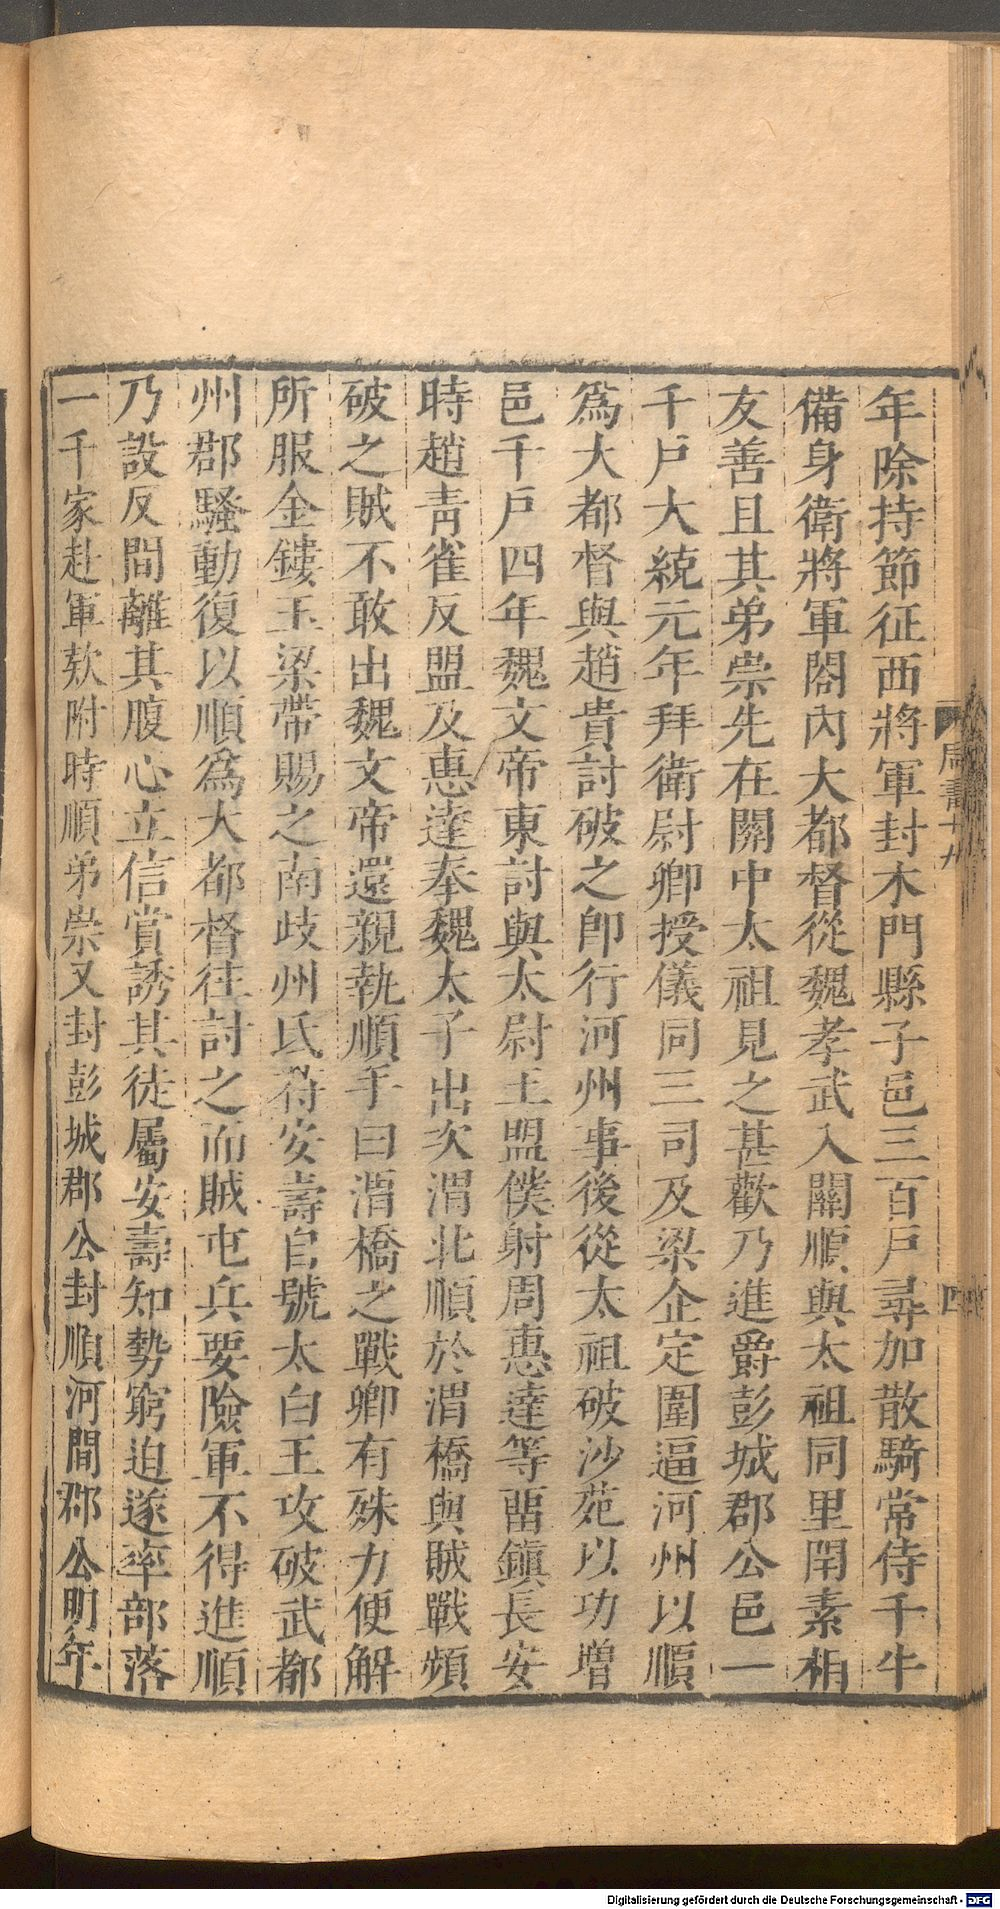 年除持節征西將軍封木門縣子邑三百戸尋加散騎常侍千牛
備身衛將軍閤內大都督從魏孝武入關順與太祖同里閈素相
友善且其弟崇先在關中太祖見之甚歡乃進爵彭城郡公邑一
千戸大統元年拜衛尉卿授儀同三司及梁企定圍逼河州以順
爲大都督與趙貴討破之即行河州事後從太祖破沙苑以功增
邑千戸四年魏文帝東討與太尉王盟僕射周惠達等畱鎭長安
時趙靑雀反盟及惠達奉魏太子出次渭北順於渭橋與賊戰頻
破之賊不敢出魏文帝還親執順手曰渭橋之戰卿有殊力便解
所服金鏤玉梁帶賜之南歧州氐苻安壽自號太白王攻破武都
州郡騷動復以順爲大都督往討之而賊屯兵要險軍不得進順
乃設反間離其腹心立信賞誘其徒屬安壽知勢窮迫遂率部落
一千家赴軍欵附時順弟崇又封彭城郡公封順河間郡公明年
周書十九
四
Digitalisierung gefördert durch die Deutsche Forschungsgemeinschaft - DFG